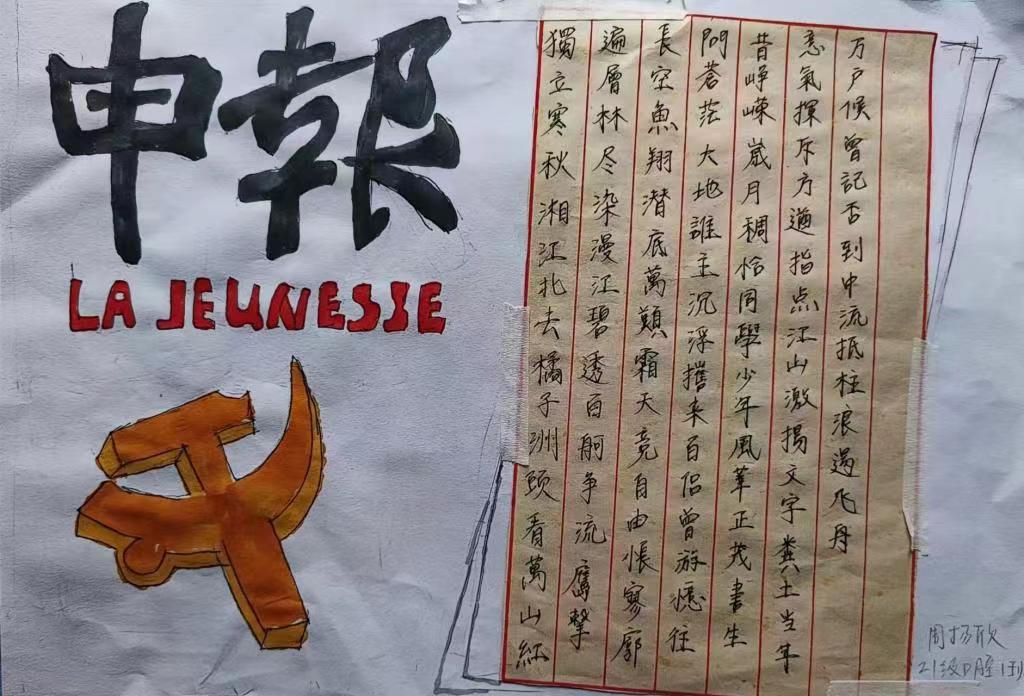 申報
LA JEUNESSE
獨立寒秋湘江北去橘子洲頭看萬山紅
遍層林尽染漫江碧透百舸争流鷹擊
長空魚翔潜底萬類霜天竞自由悵寥廓
問蒼茫大地誰主沉浮攜来百侣曾游憶往
昔崢嶸崴月稠恰同學少年風華正茂書生
意氣揮斥方遒指点江山激揚文字糞土当年
万户候曾記否到中流抵柱浪遏飞舟
周扬欣
21级口腔1班